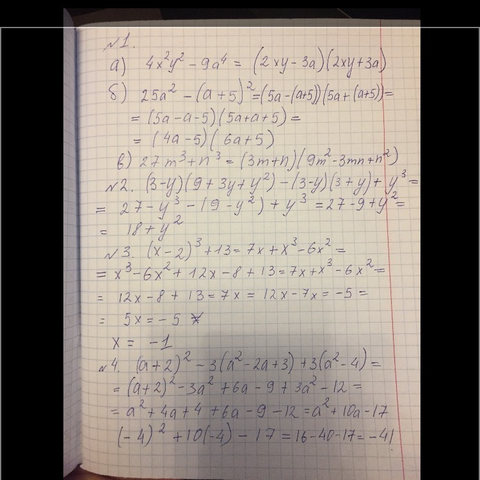 №1.
а) 4x²y² - 9a⁴ = (2xy - 3a)(2xy + 3a)
б) 25a² - (a+5)² = (5a - (a+5))(5a + (a+5)) =
= (5a - a - 5)(5a + a + 5) =
= (4a - 5)(6a + 5)
в) 27m³ + n³ = (3m + n)(9m² - 3mn + n²)
№2. (3-y)(9 + 3y + y²) - (3-y)(3+y) + y³ =
= 27 - y³ - (9 - y²) + y³ = 27 - 9 + y² =
= 18 + y²
№3. (x-2)³ + 13 = 7x + x³ - 6x² =
= x³ - 6x² + 12x - 8 + 13 = 7x + x³ - 6x² =
= 12x - 8 + 13 = 7x = 12x - 7x = -5 =
= 5x = -5
x = -1
№4. (a+2)² - 3(a² - 2a + 3) + 3(a² - 4) =
= (a+2)² - 3a² + 6a - 9 + 3a² - 12 =
= a² + 4a + 4 + 6a - 9 - 12 = a² + 10a - 17
(-4)² + 10(-4) - 17 = 16 - 40 - 17 = -41